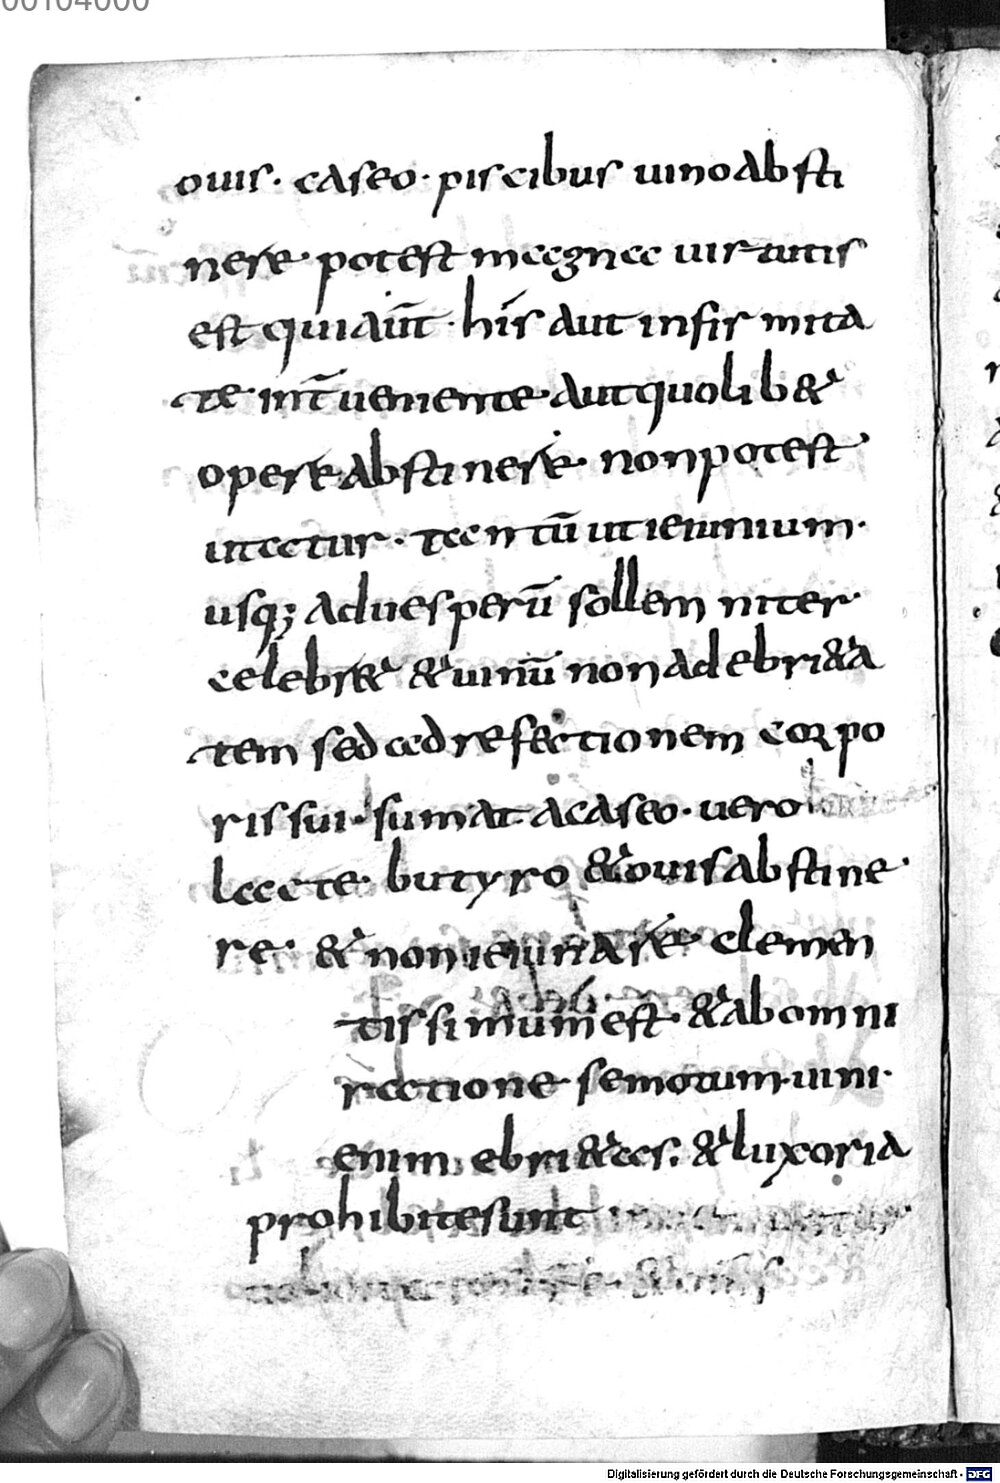 00104000
ouis· caseo· piscibus uino absti
nere· potest magnae uirtutis
est qui aūt· hiś aut infirmita
te int̄ueniente· aut quolib&
opere abstinere· non potest
utatur· tantū ut ieiunium·
usq; ad uesperū sollemniter·
celebr& & uinū non ad ebri&a
tem sed ad refectionem corpo
ris sui· sumat a caseo· uero
lacte· butyro & ouis abstine·
re· & non ieiunare· clemen
tissimum est & ab omni
ratione semotum· uini·
enim ebri&as· & luxoria
prohibite sunt
Digitalisierung gefördert durch die Deutsche Forschungsgemeinschaft - DFG